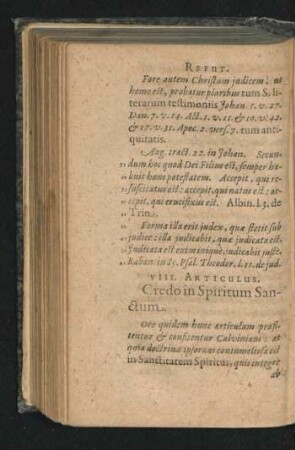 REFUT.
Fore autem Christum judicem, ut
homo est, probatur pluribus tum S. li-
terarum testimoniis Johan. 5. v. 27.
Dan. 7. v. 14. Act. 1. v. 11. & 10. v. 42.
& 17. v. 31. Apoc. 2. vers. 7. tum anti-
quitatis.
Aug. tract. 22. in Johan. Secun-
„ dum hoc quod Dei Filius est, semper ha-
„ buit hanc potestatem. Accepit, qui re-
„ suscitatus est: accepit, qui natus est: ac-
„ cepit, qui crucifixus est. Albin. l. 3. de
„ Trin.
„ Forma illa erit judex, quæ stetit sub
„ judice: illa judicabit, quæ judicata est.
„ Judicata est enim inique, judicabit just.
Raban. in 25. Psal. Theodor. l. 11. de jud.
VIII. ARTICULUS.
Credo in Spiritum San-
ctum.
quidem hunc articulum profi-
tentur & confitentur Calviniani: at
quia doctrina ipsorum contumeliosa est
in Sanctitatem Spiritus, quis integre
ab